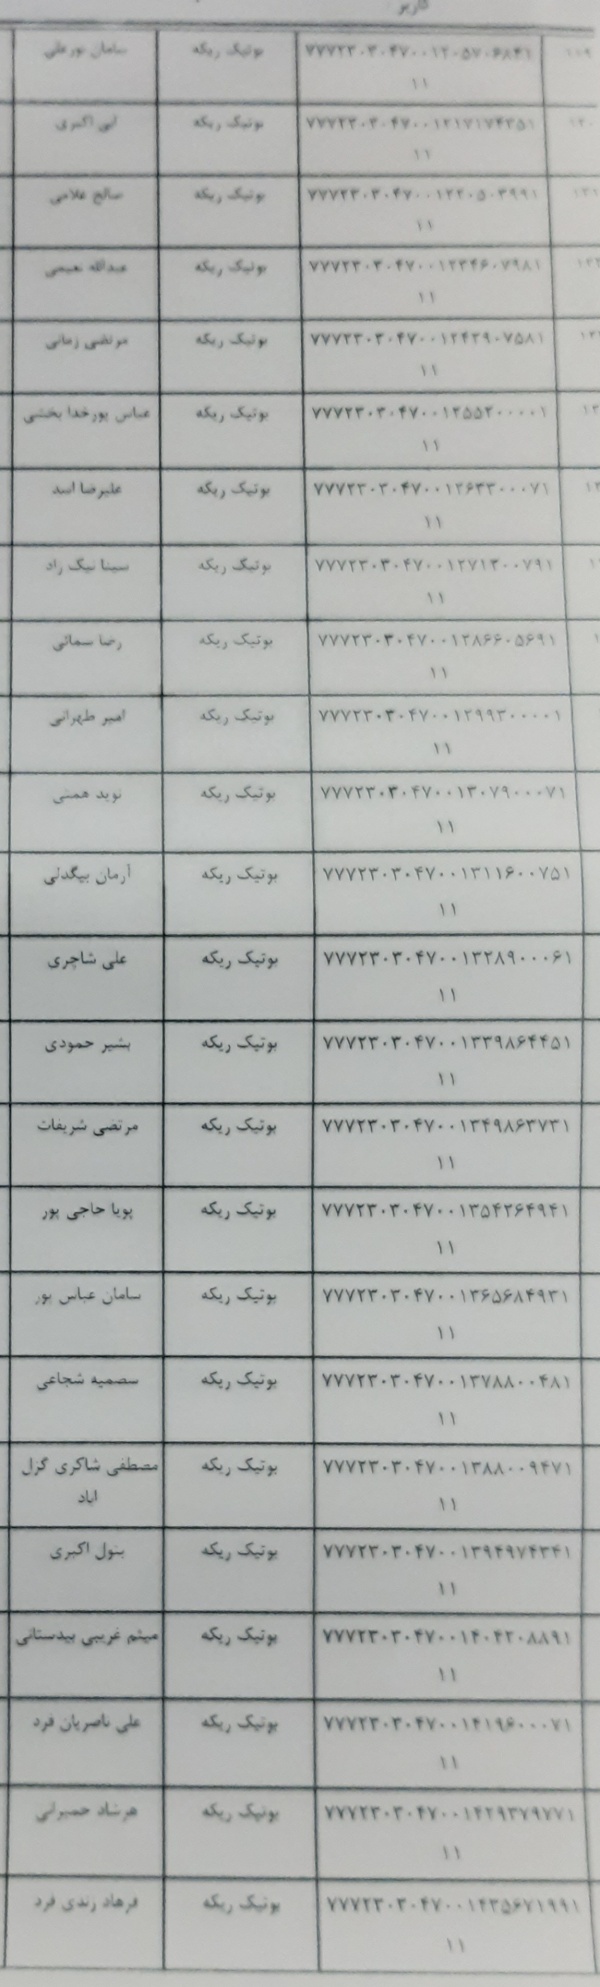 کاربر
۱۱۹ ۷۷۷۲۳۰۳۰۴۷۰۰۱۲۰۵۷۰۶۸۴۱ بوتیک ریکه سامان نورعلی
۱۱
۷۷۷۲۳۰۳۰۴۷۰۰۱۲۱۷۱۷۴۳۵۱ بوتیک ریکه اکبری
۱۱
۷۷۷۲۳۰۳۰۴۷۰۰۱۲۲۰۵۰۳۹۹۱ بوتیک ریکه صالح غلامی
۱۱
۷۷۷۲۳۰۳۰۴۷۰۰۱۲۳۴۶۰۷۹۸۱ بوتیک ریکه عبدالله نعیمی
۱۱
۷۷۷۲۳۰۳۰۴۷۰۰۱۲۴۲۹۰۷۵۸۱ بوتیک ریکه مرتضی زمانی
۱۱
۷۷۷۲۳۰۳۰۴۷۰۰۱۲۵۵۲۰۰۰۰۱ بوتیک ریکه عباس پورخدا بخشی
۱۱
۷۷۷۲۳۰۳۰۴۷۰۰۱۲۶۳۳۰۰۰۷۱ بوتیک ریکه علیرضا اسد
۱۱
۷۷۷۲۳۰۳۰۴۷۰۰۱۲۷۱۳۰۰۷۹۱ بوتیک ریکه سینا نیک راد
۱۱
۷۷۷۲۳۰۳۰۴۷۰۰۱۲۸۶۶۰۵۶۹۱ بوتیک ریکه رضا سمائی
۱۱
۷۷۷۲۳۰۳۰۴۷۰۰۱۲۹۹۳۰۰۰۰۱ بوتیک ریکه امیر طهرانی
۱۱
۷۷۷۲۳۰۳۰۴۷۰۰۱۳۰۷۹۰۰۰۷۱ بوتیک ریکه نوید همتی
۱۱
۷۷۷۲۳۰۳۰۴۷۰۰۱۳۱۱۶۰۰۷۵۱ بوتیک ریکه آرمان بیگدلی
۱۱
۷۷۷۲۳۰۳۰۴۷۰۰۱۳۲۸۹۰۰۰۶۱ بوتیک ریکه علی شاچری
۱۱
۷۷۷۲۳۰۳۰۴۷۰۰۱۳۳۹۸۶۴۴۵۱ بوتیک ریکه بشیر حمودی
۱۱
۷۷۷۲۳۰۳۰۴۷۰۰۱۳۴۹۸۶۳۷۳۱ بوتیک ریکه مرتضی شریفات
۱۱
۷۷۷۲۳۰۳۰۴۷۰۰۱۳۵۴۲۶۴۹۴۱ بوتیک ریکه پویا حاجی پور
۱۱
۷۷۷۲۳۰۳۰۴۷۰۰۱۳۶۵۶۸۴۹۳۱ بوتیک ریکه سامان عباس پور
۱۱
۷۷۷۲۳۰۳۰۴۷۰۰۱۳۷۸۸۰۰۴۸۱ بوتیک ریکه سصمیه شجاعی
۱۱
۷۷۷۲۳۰۳۰۴۷۰۰۱۳۸۸۰۰۹۴۷۱ بوتیک ریکه مصطفی شاکری گرل
۱۱ اباد
۷۷۷۲۳۰۳۰۴۷۰۰۱۳۹۴۹۷۴۳۴۱ بوتیک ریکه بتول اکبری
۱۱
۷۷۷۲۳۰۳۰۴۷۰۰۱۴۰۴۲۰۸۸۹۱ بوتیک ریکه میثم غریبی بیدستانی
۱۱
۷۷۷۲۳۰۳۰۴۷۰۰۱۴۱۹۶۰۰۰۷۱ بوتیک ریکه علی ناصریان فرد
۱۱
۷۷۷۲۳۰۳۰۴۷۰۰۱۴۲۹۳۷۹۷۷۱ بوتیک ریکه هرشاد حمیرانی
۱۱
۷۷۷۲۳۰۳۰۴۷۰۰۱۴۳۵۶۷۱۹۹۱ بوتیک ریکه فرهاد رندی فرد
۱۱